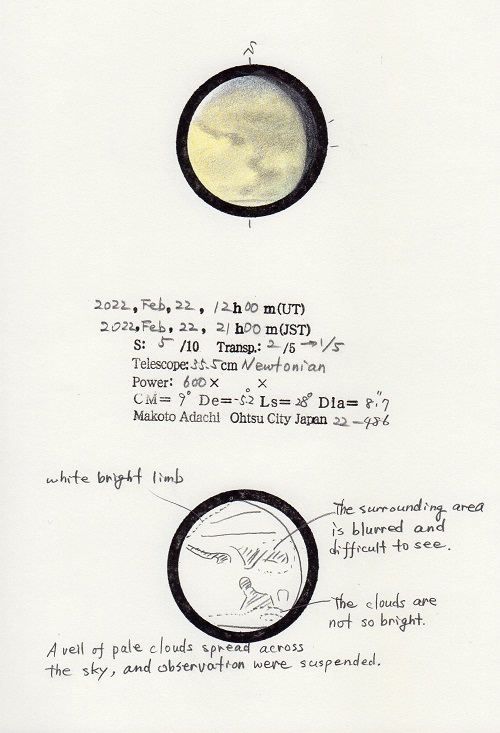 S
2022, Feb, 22, 12h00 m(UT)
2022, Feb, 22, 21h00 m(JST)
S: 5 /10 Transp.: 2 /5 → 1/5
Telescope: 35.5cm Newtonian
Power: 600× ×
CM= 9° De= -5.2° Ls= 28° Dia= 8."7
Makoto Adachi Ohtsu City Japan 22-486
white bright limb
The surrounding area
is blurred and
difficult to see.
The clouds are
not so bright.
A veil of pale clouds spread across
the sky, and observation were suspended.